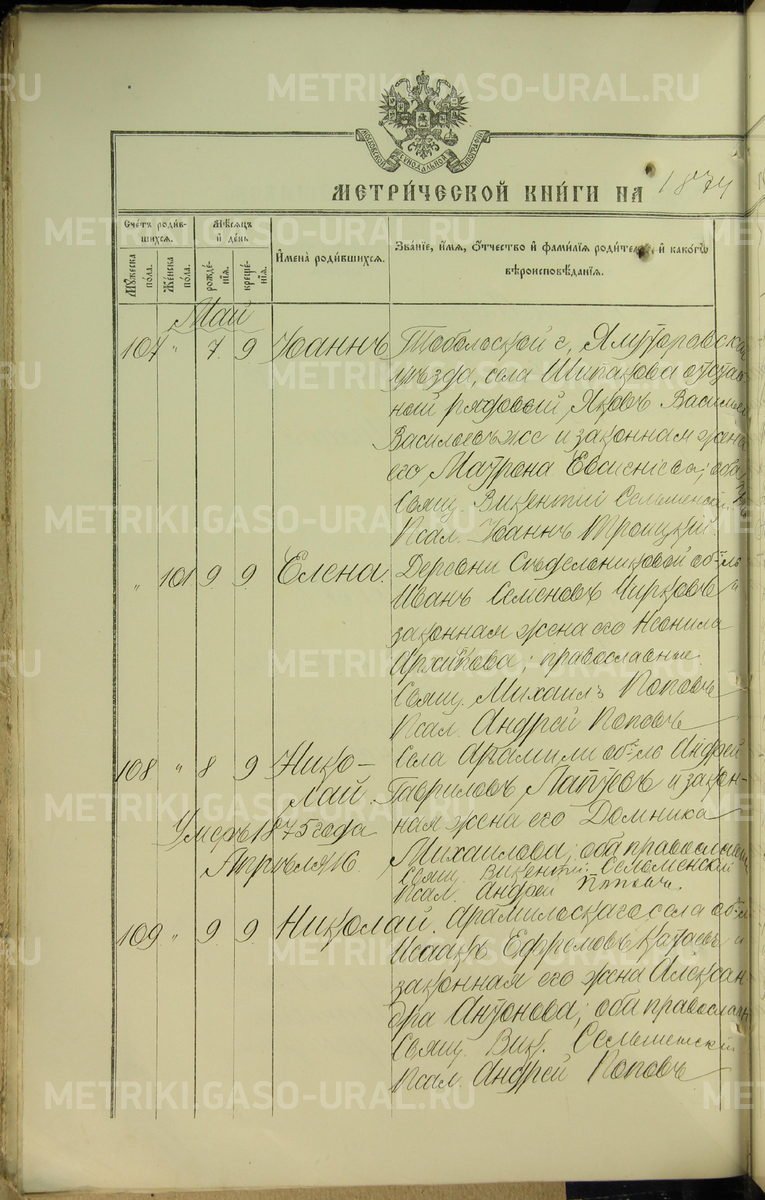 METRIKI.GASO-URAL.RU
МЕТРИ́ЧЕСКОЙ КНИ́ГИ НА 1874
Сче́тъ роди́в-
шихся.
Мꙋ́жеска по́ла.
Же́нска по́ла.
Мѣ́сяцъ
и҆ де́нь
рожде́нїѧ.
креще́нїѧ.
И҆мена̀ роди́вшихся.
Зва́нїе, и҆́мѧ, ѻ҆́тчество и҆ фами́лїѧ роди́телей, и҆ како́гѡ
вѣроисповѣ́данїѧ.
Май
107 " 7 9 Іоаннъ Тобольской г. Ялуторовска
уѣзда, села Шипакова отстав
ной рядовой, Яковъ Василье
Васильевъ же и законная жена
его Матрона Евсигніева; оба
Свящ. Викентій Сельменскій
Псал. Іоаннъ Троицкій.
" 101 9 9 Елена. Деревни Сѣдельниковой об-ль
Иванъ Семеновъ Чирковъ и
законная жена его Неонила
Архипова; православные
Свящ. Михаилъ Поповъ
Псал. Андрей Поповъ
108 " 8 9 Нико- Села Арамили об-ль Андрей
лай Гавриловъ Лаптевъ и закон-
Умеръ 1875 года ная жена его Домника
Михаилова; оба православные
Свящ. Викентій Сельменскій
Псал. Андрей Поповъ.
109 " 9 9 Николай. Арамильскаго села об-ль
Исаакъ Ефремовъ Катаевъ и
законная его жена Алексан
дра Антонова; оба православн
Свящ. Вик. Сельменскій
Псал. Андрей Поповъ